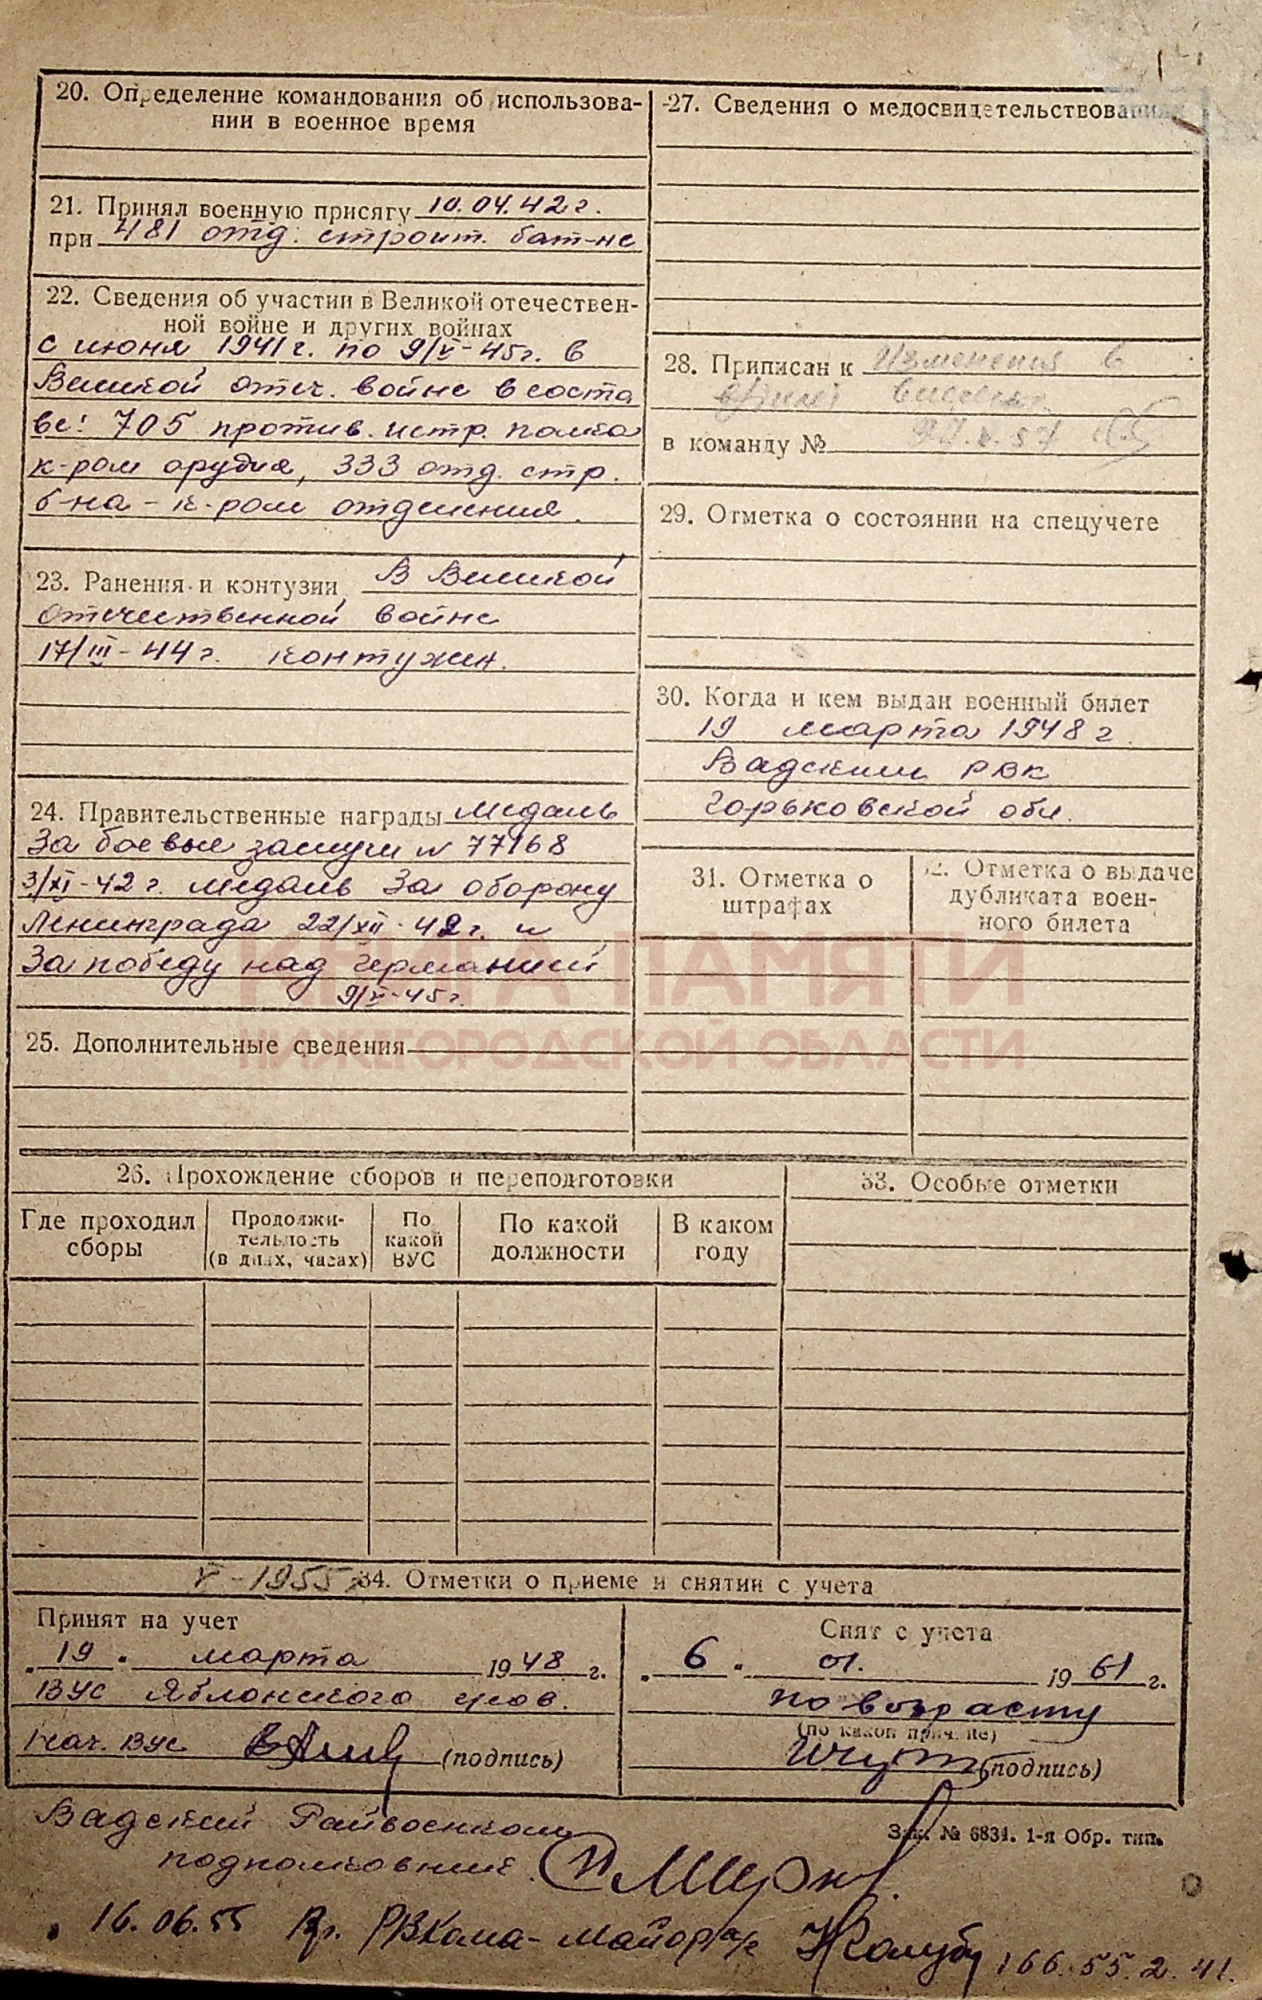 20. Определение командования об использова-
нии в военное время
21. Принял военную присягу 10.04.42 г.
при 481 отд. строит. бат-не
22. Сведения об участии в Великой отечествен-
ной войне и других войнах
с июня 1941 г. по 9/V-45г. в
Великой отеч. войне в соста
ве: 705 против. истр. полка
к-ром орудия, 333 отд. стр.
б-на - к-ром отделения.
23. Ранения и контузии В Великой
отечественной войне
17/III-44 г. контужен.
24. Правительственные награды медаль
За боевые заслуги № 77168
3/XI-42 г. медаль За оборону
Ленинграда 22/XII-42 г. и
За победу над Германией
9/V-45 г.
25. Дополнительные сведения
КНИГА ПАМЯТИ
НИЖЕГОРОДСКОЙ ОБЛАСТИ
27. Сведения о медосвидетельствованиях
28. Приписан к Изменения в
в команду №
29. Отметка о состоянии на спецучете
30. Когда и кем выдан военный билет
19 марта 1948 г.
Вадским РВК
Горьковской обл.
31. Отметка о
штрафах
32. Отметка о выдаче
дубликата воен-
ного билета
26. Прохождение сборов и переподготовки
Где проходил
сборы
Продолжи-
тельность
(в днях, часах)
По
какой
ВУС
По какой
должности
В каком
году
33. Особые отметки
V-1955 34. Отметки о приеме и снятии с учета
Принят на учет
"19" марта 1948 г.
ВУС Яблонского
Нач. ВУС (подпись)
Снят с учета
"6" 01. 1961 г.
по возрасту
(по какой причине)
(подпись)
Вадский Райвоенком
подполковник
Зак. № 6834. 1-я Обр. тип.
16.06.55 Вр. РВКома - майор а/с
166.55.2.41.